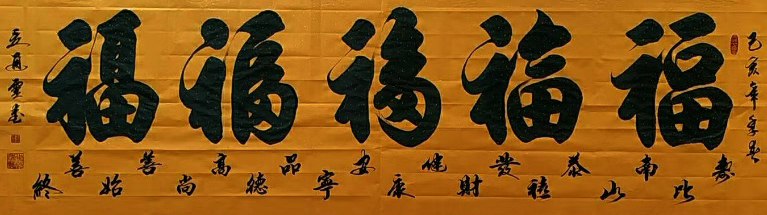 己亥年
福福福福福
壽比南山
恭禧發財
健康安寧
品德高尚
善始善終